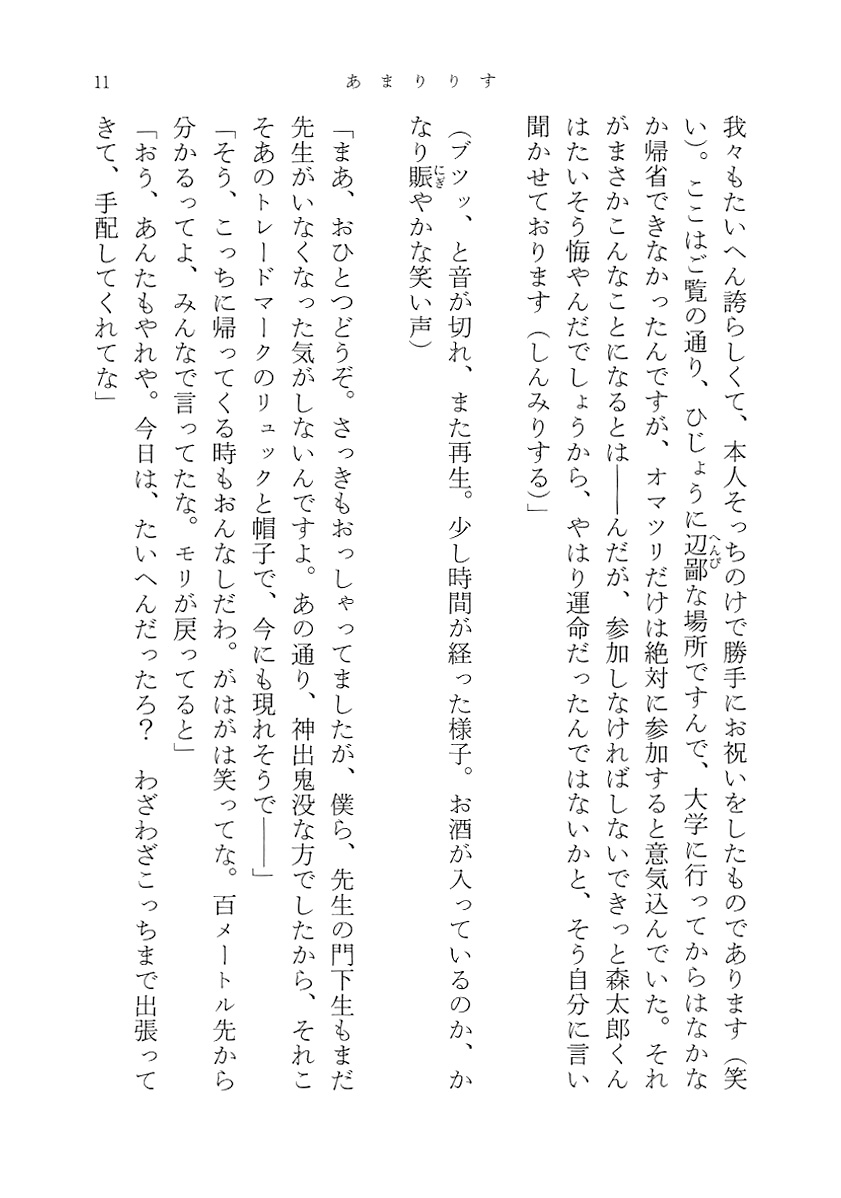 あまりりす
11
我々もたいへん誇らしくて、本人そっちのけで勝手にお祝いをしたものであります（笑
い）。ここはご覧の通り、ひじょうに辺鄙な場所ですんで、大学に行ってからはなかな
へんぴ
か帰省できなかったんですが、オマツリだけは絶対に参加すると意気込んでいた。それ
がまさかこんなことになるとは――んだが、参加しなければしないできっと森太郎くん
はたいそう悔やんだでしょうから、やはり運命だったんではないかと、そう自分に言い
聞かせております（しんみりする）」
（ブツッ、と音が切れ、また再生。少し時間が経った様子。お酒が入っているのか、か
なり賑やかな笑い声）
にぎ
「まあ、おひとつどうぞ。さっきもおっしゃってましたが、僕ら、先生の門下生もまだ
先生がいなくなった気がしないんですよ。あの通り、神出鬼没な方でしたから、それこ
そあのトレードマークのリュックと帽子で、今にも現れそうで――」
「そう、こっちに帰ってくる時もおんなしだわ。がはがは笑ってな。百メートル先から
分かるってよ、みんなで言ってたな。モリが戻ってると」
「おう、あんたもやれや。今日は、たいへんだったろ？　わざわざこっちまで出張って
きて、手配してくれてな」